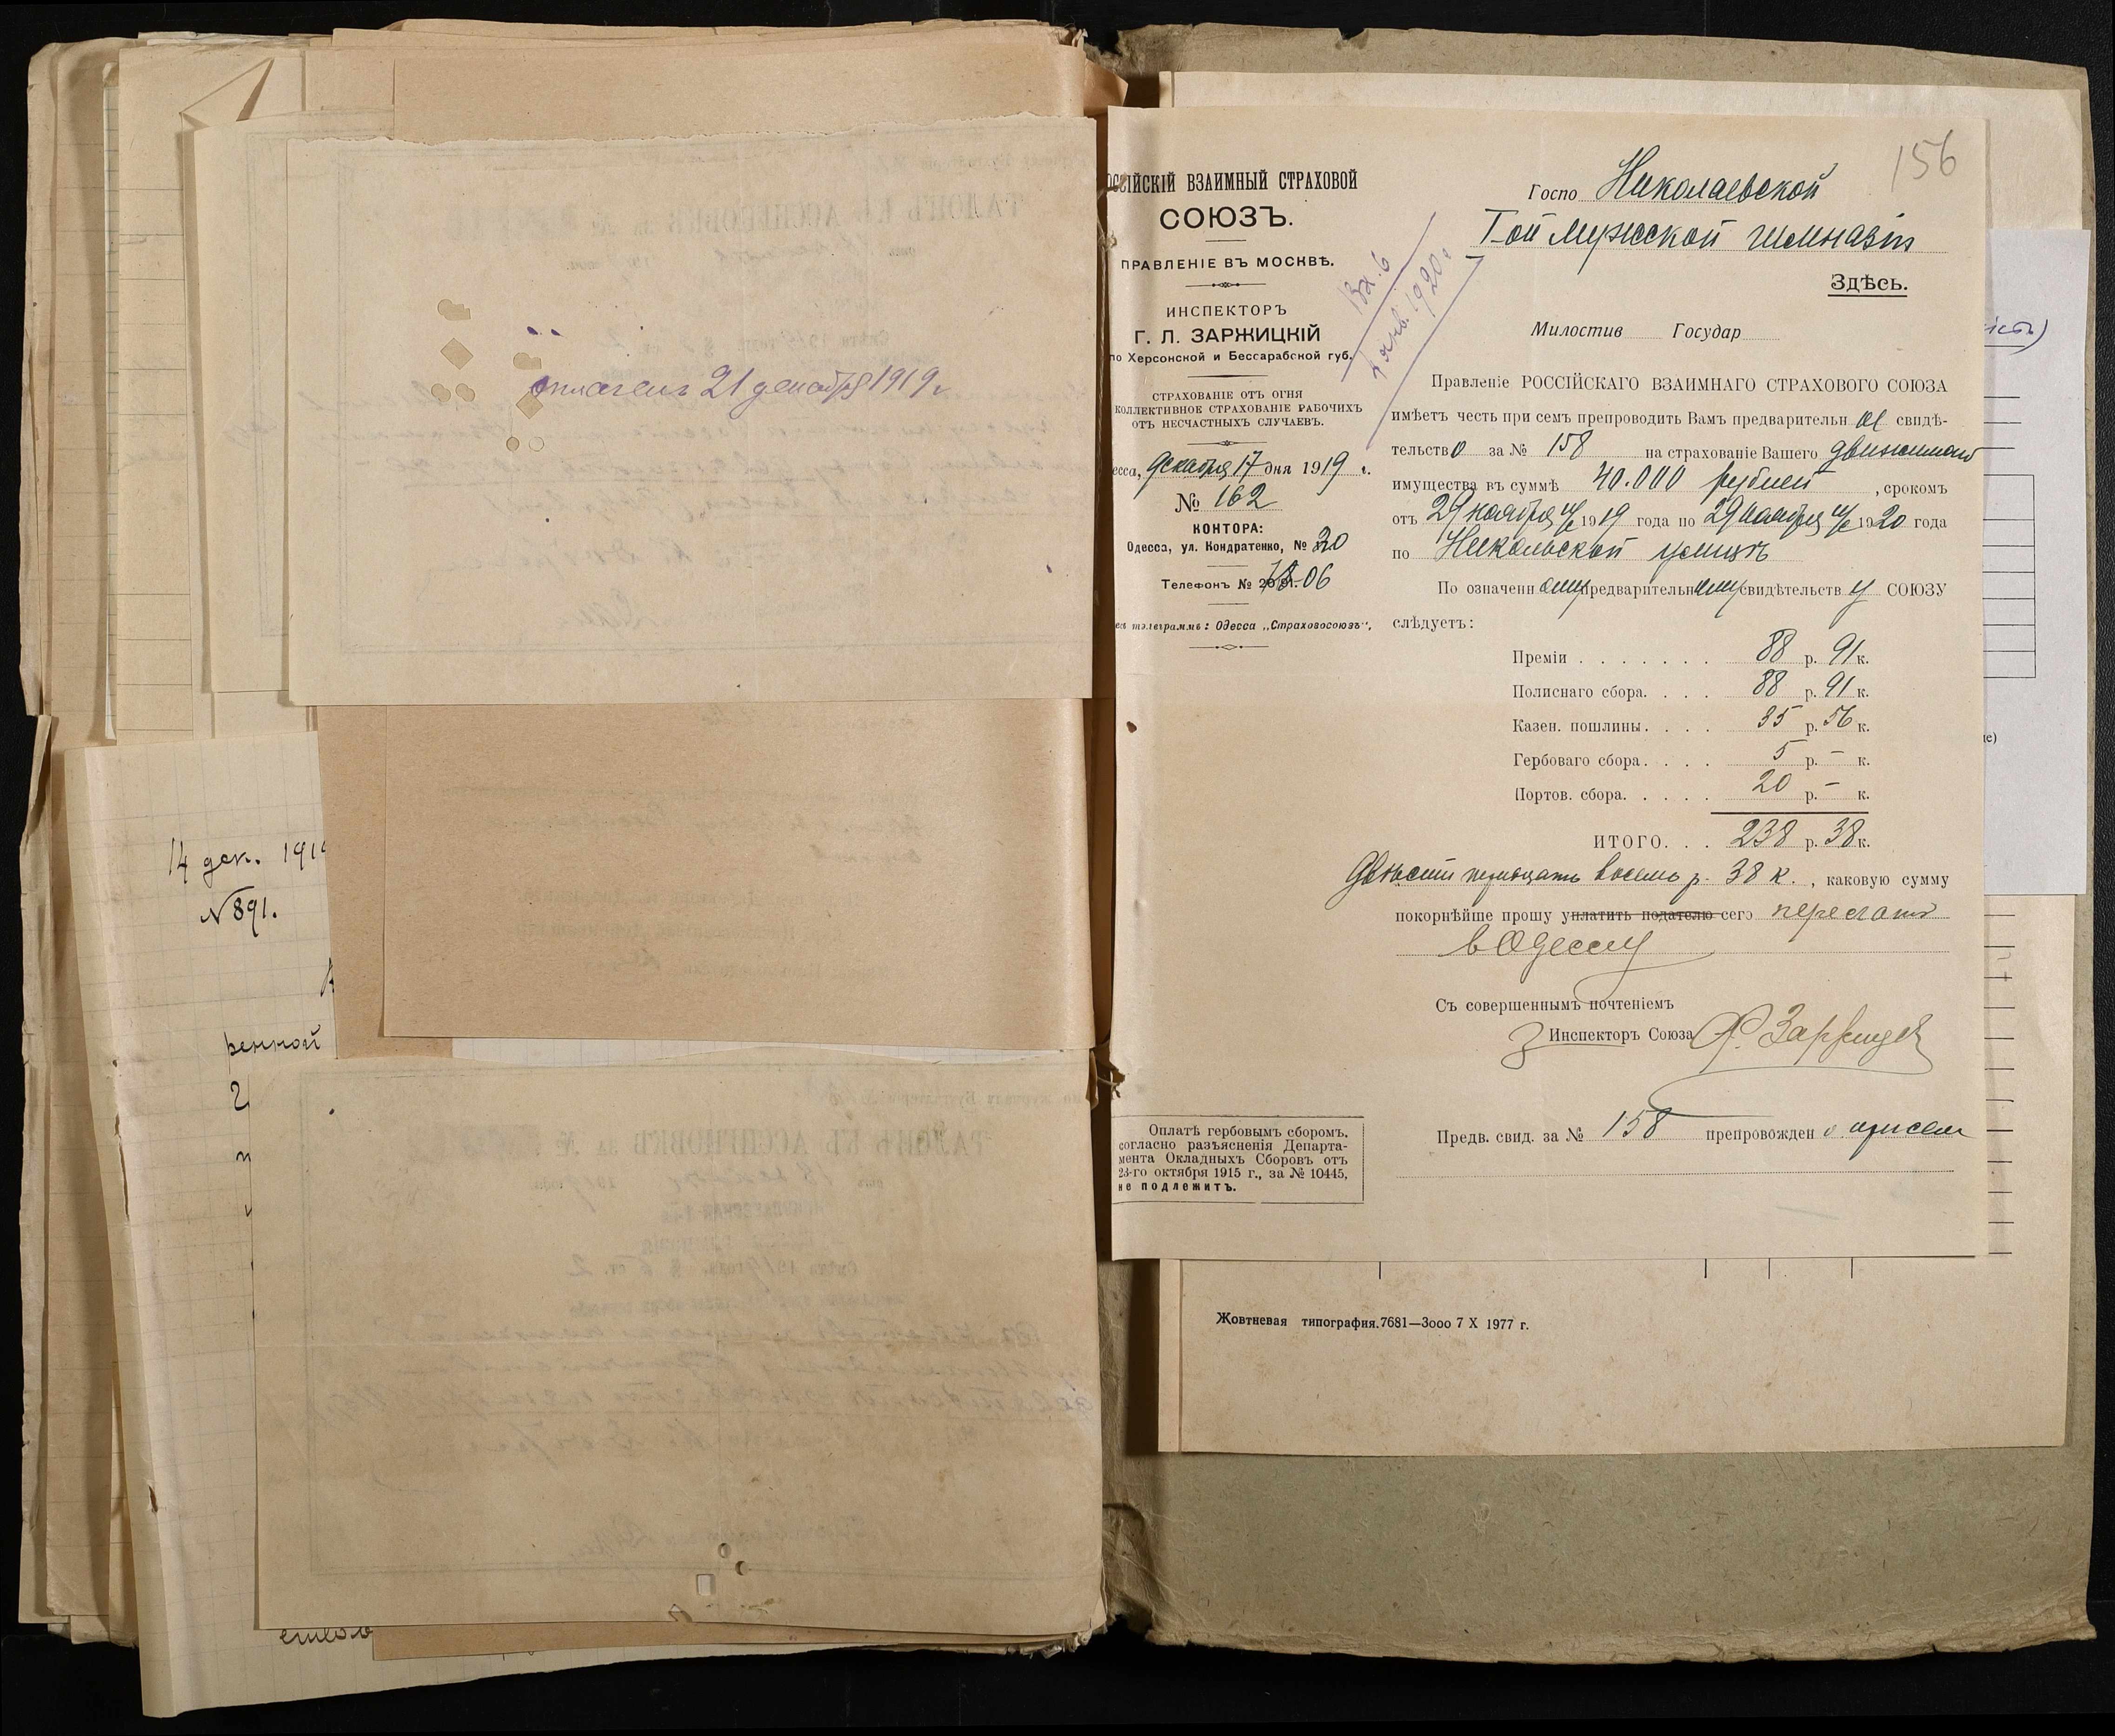 оплачен 21 декабря 1919 г.
14 дек. 191
№ 891.
ренной
156
РОССІЙСКІЙ ВЗАИМНЫЙ СТРАХОВОЙ
СОЮЗЪ.
ПРАВЛЕНІЕ ВЪ МОСКВѢ.
ИНСПЕКТОРЪ
Г. Л. ЗАРЖИЦКІЙ
по Херсонской и Бессарабской губ.
СТРАХОВАНІЕ ОТЪ ОГНЯ
КОЛЛЕКТИВНОЕ СТРАХОВАНІЕ РАБОЧИХЪ
ОТЪ НЕСЧАСТНЫХЪ СЛУЧАЕВЪ.
есса, декабря 17 дня 1919 г.
№ 162
КОНТОРА:
Одесса, ул. Кондратенко, № 20
Телефонъ № 06
телеграммъ: Одесса „Страховосоюзъ",
Вх. 6
янв. 1920 г
Госпо Николаевской
I-ой мужской гимназіи
Здѣсь.
Милостив Государ
Правленіе РОССІЙСКАГО ВЗАИМНАГО СТРАХОВОГО СОЮЗА
имѣетъ честь при семъ препроводить Вамъ предварительн ое свидѣ-
тельство за № 158 на страхованіе Вашего движимаго
имущества въ суммѣ 40.000 рублей , срокомъ
отъ 29 ноября н/с 1919 года по 29 ноября н/с 1920 года
по Никольской улицѣ
По означенн ому предварительн ому свидѣтельств у СОЮЗУ
слѣдуетъ:
Преміи . . . . . . . 88 р. 91 к.
Полиснаго сбора. . . . 88 р. 91 к.
Казен. пошлины. . . . 35 р. 56 к.
Гербоваго сбора. . . . 5 р. – к.
Портов. сбора. . . . . 20 р. – к.
ИТОГО. . . 238 р. 38 к.
Двѣсти тридцать восемь р. 38 к. , каковую сумму
покорнѣйше прошу уплатить подателю сего переслать
в Одессу
Съ совершеннымъ почтеніемъ
З Инспекторъ Союза
Предв. свид. за № 158 препровожден о при сем
Оплатѣ гербовымъ сборомъ.
согласно разъясненія Департа-
мента Окладныхъ Сборовъ отъ
23-го октября 1915 г., за № 10445,
не подлежитъ.
Жовтневая типография.7681—3000 7 X 1977 г.